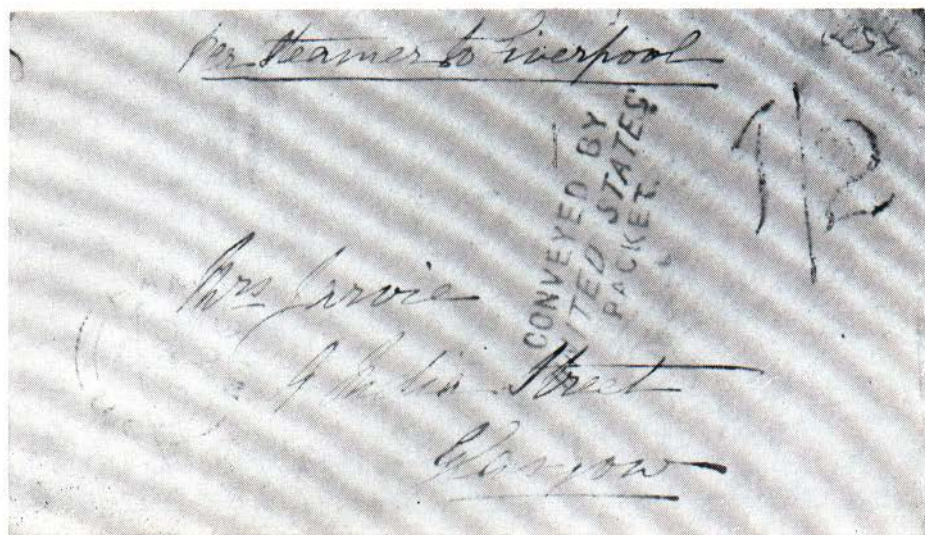 Per Steamer to Liverpool
1/2
CONVEYED BY
UNITED STATES
PACKET.
Mrs Jarvie
Street
Glasgow